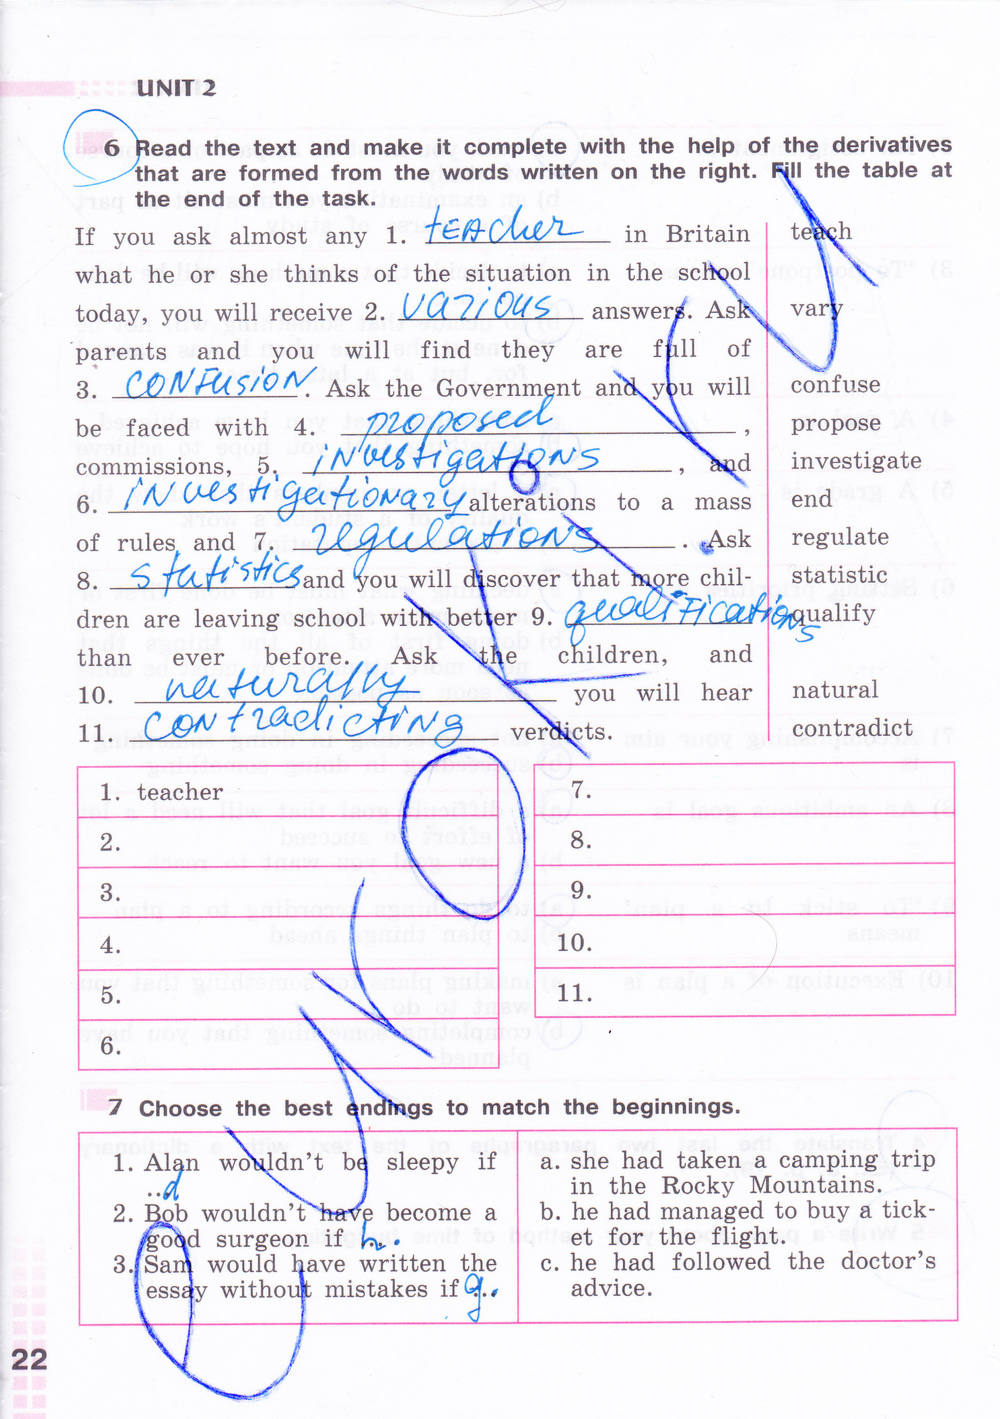 UNIT 2
6 Read the text and make it complete with the help of the derivatives
that are formed from the words written on the right. Fill the table at
the end of the task.
If you ask almost any 1. teacher in Britain teach
what he or she thinks of the situation in the school
today, you will receive 2. various answers. Ask vary
parents and you will find they are full of
3. confusion. Ask the Government and you will confuse
be faced with 4. proposed, propose
commissions, 5. investigations, and investigate
6. investigationary alterations to a mass end
of rules and 7. regulations. Ask regulate
8. statistics and you will discover that more chil- statistic
dren are leaving school with better 9. qualifications qualify
than ever before. Ask the children, and
10. naturally you will hear natural
11. contradicting verdicts. contradict
1. teacher 7.
2. 8.
3. 9.
4. 10.
5. 11.
6.
7 Choose the best endings to match the beginnings.
1. Alan wouldn't be sleepy if
..d
2. Bob wouldn't have become a
good surgeon if h..
3. Sam would have written the
essay without mistakes if g..
a. she had taken a camping trip
in the Rocky Mountains.
b. he had managed to buy a tick-
et for the flight.
c. he had followed the doctor's
advice.
22